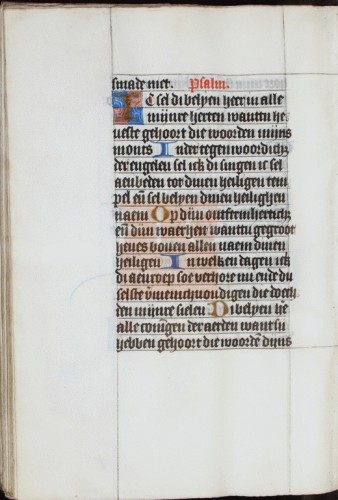 smade niet. Psalm.
Ic sel di belyen heer in alle
mijnre herten wanttu he
ueste gehoort die woorden mijns
monts In der tegenwoordich
der engelen sel ick di singen ic sel
aenbeden tot dinen heiligen tem
pel en̄ sel belyen dinen heilighen
naem Op dijn ontfermhertich
en̄ dijn waerheit wanttu gegroot
heues bouen allen naem dinen
heiligen In welken dagen ick
di aenroep soe verhore mi ende du
selste
den mijnre sielen Di belyen he
alle coningen der aerden want si
hebben gehoort die woordē dijns